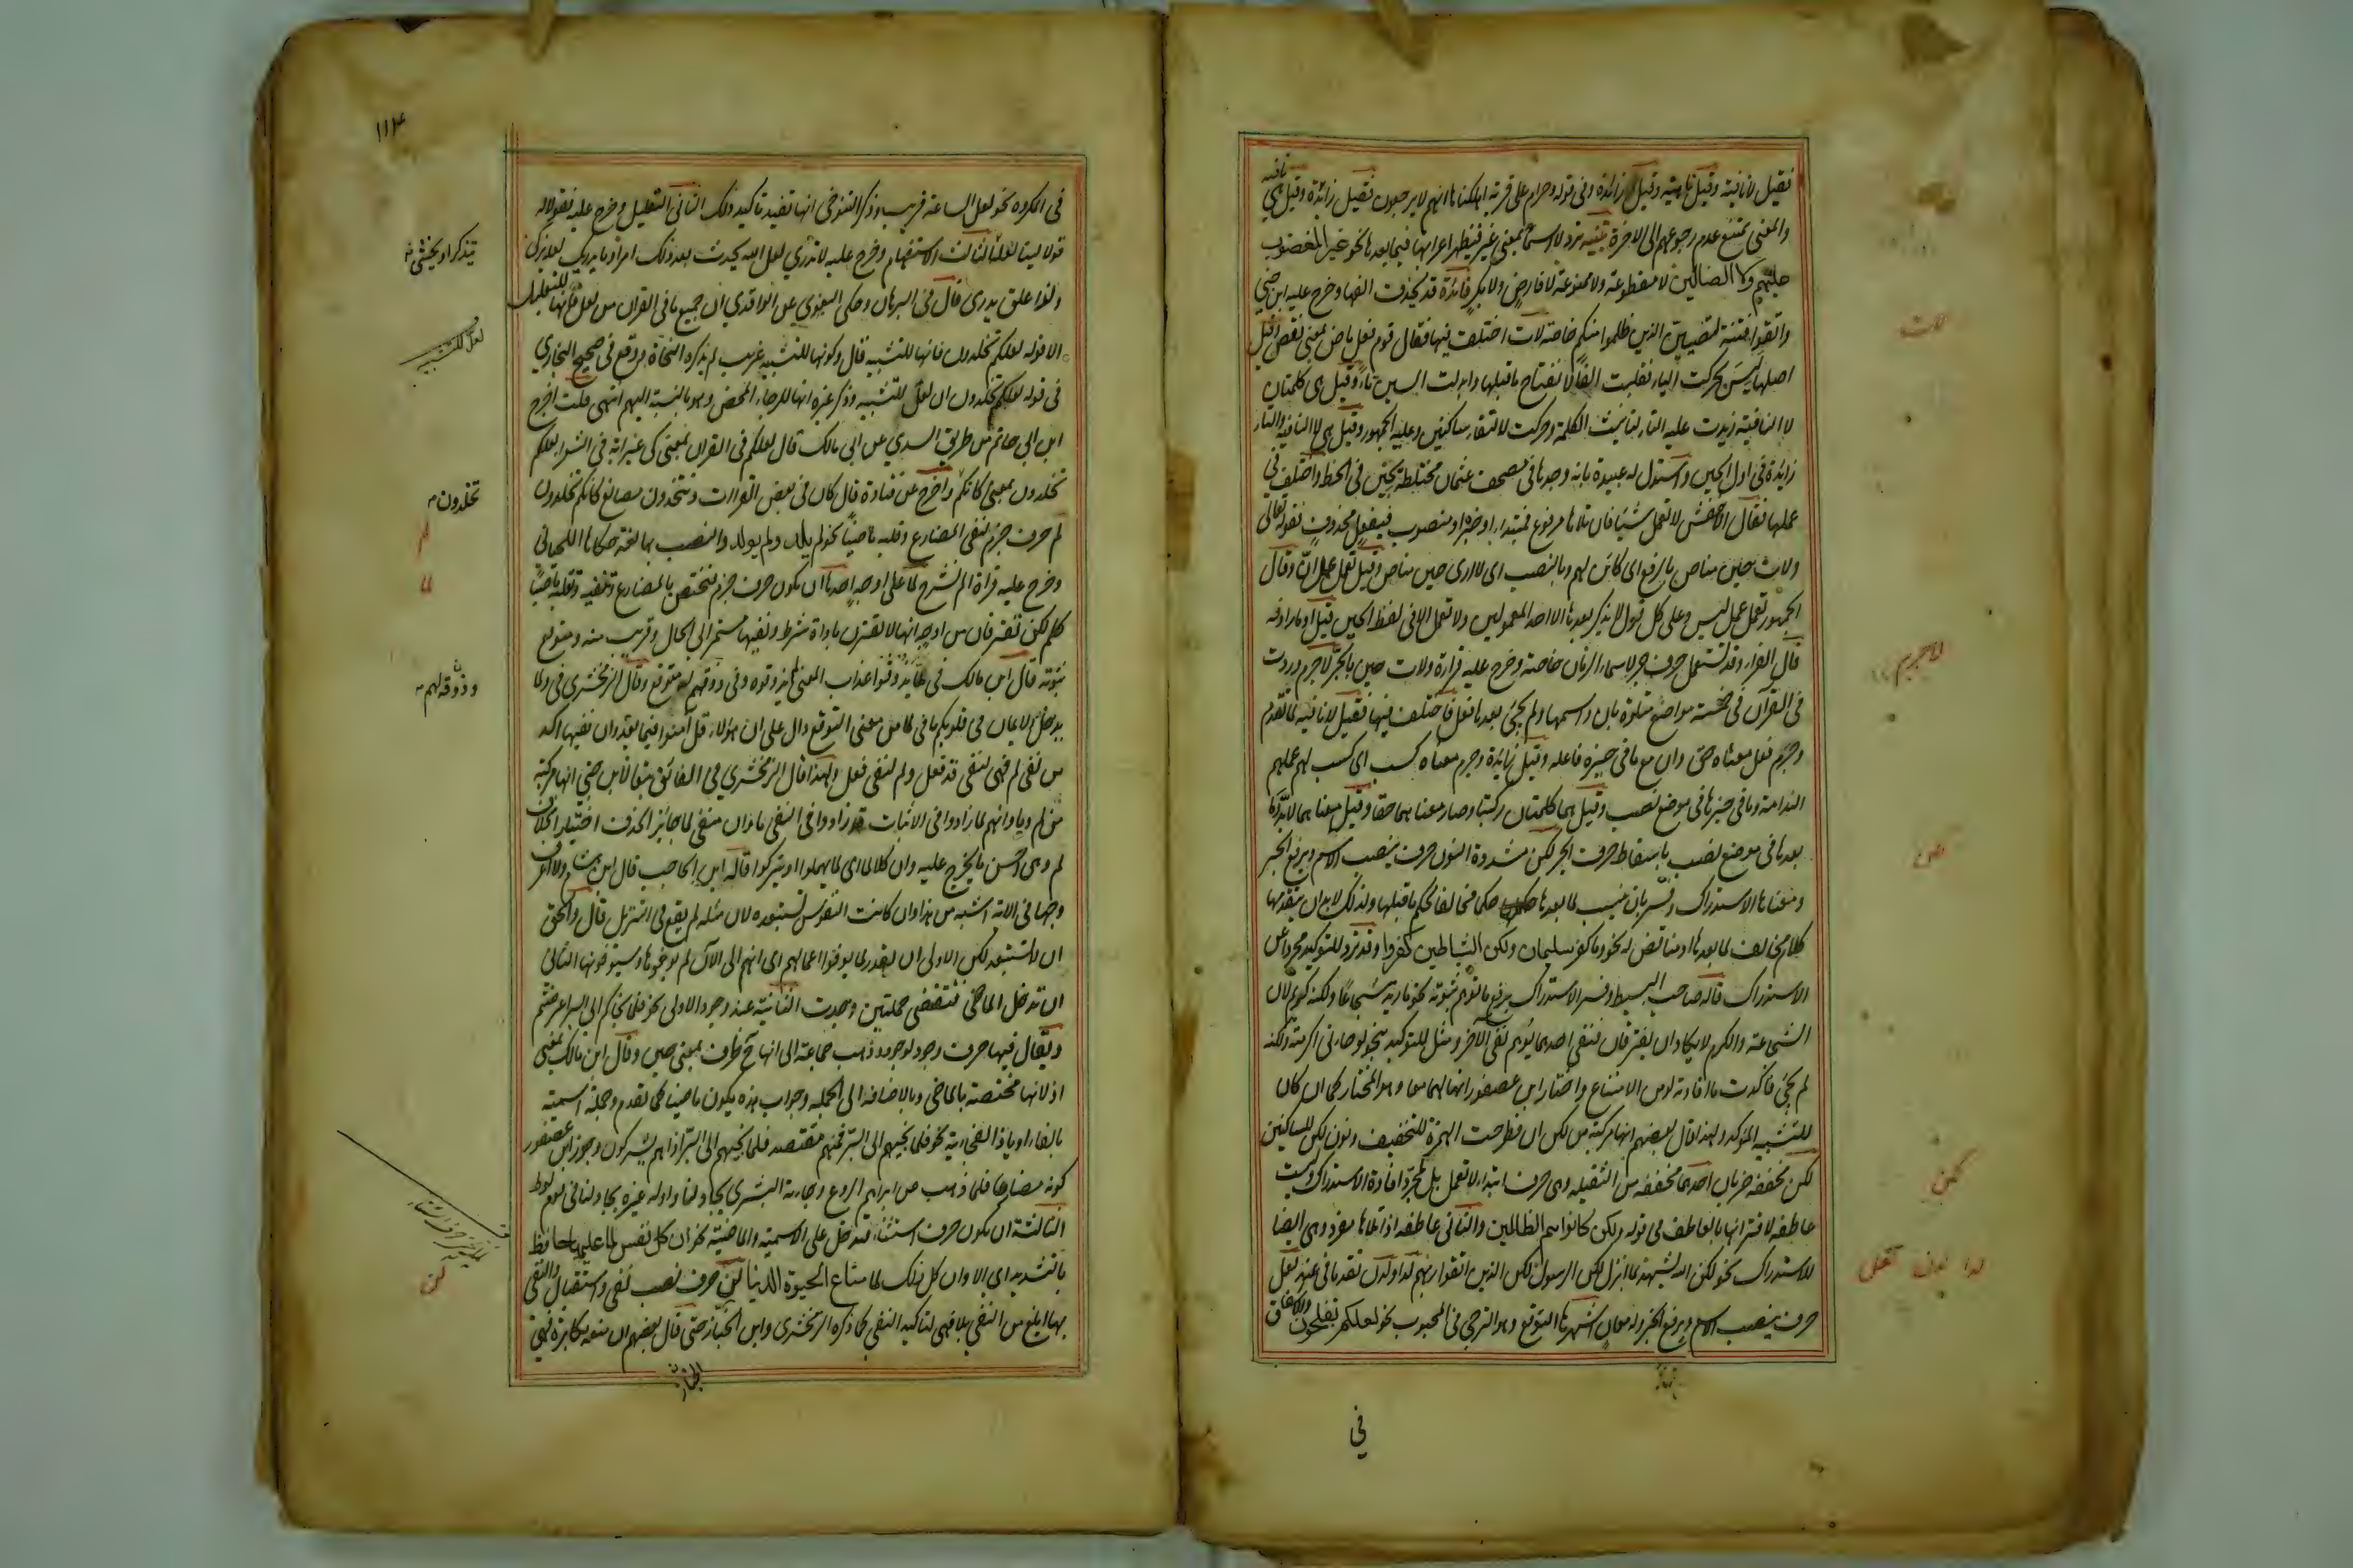 فقيل لا نافية وقيل ناهية وقيل زائدة وفي قوله وحرام على قرية اهلكناها انهم لا يرجعون فقيل زائدة وقيل هي نافيه
والمعنى يمتنع عدم رجوعهم الى الاخرة تنبيه ترد لا اسما بمعنى غير فيظهر اعرابها فيما بعدها نحو غير المغضوب
عليهم ولا الضالين لا مقطوعة ولا ممنوعة لا فارض ولا بكر فائدة قد يحذف الفها وخرج عليه ابن جني
واتقوا فتنة لتصيبن الذين ظلموا منكم خاصة لات اختلف فيها فقال قوم فعل ماض بمعنى نقص وقيل
اصلها ليس تحركت الياء فقلبت الفا لانفتاح ماقبلها وابدلت السين تاء وقيل هي كلمتان
لا النافية زيدت عليه التاء لتانيث الكلمة وحركت لالتقاء ساكنين وعليه الجمهور وقيل هي لا النافية والتاء
زايدة في اول الحين واستدل له عبيدة بانه وجدها في مصحف عثمان مختلطة بحين في الخط واختلف في
عملها فقال الاخفش لا تعمل شيئا فان تلاها مرفوع فمبتداء او خبر او منصوب فبفعل محذوف فقوله تعالى
ولات حين مناص بالرفع اى كائن لهم وبالنصب اى لا ارى حين مناص وقيل تعمل عمل ان وقال
الجمهور تعمل عمل ليس وعلى كل قول لا يذكر بعدها الا احد المعمولين ولا تعمل الا في لفظ الحين قيل او ما رادفه
قال الفراء وقد تستعمل حرف جر لاسماء الزمان خاصة وخرج عليه قراءة ولات حين بالجر لاجرم وردت
في القران في خمسة مواضع متلوة بان واسمها ولم يجئ بعدها فعل فاختلف فيها فقيل لا نافية لما تقدم
وجرم فعل معناه حق وان مع ما في حيزه فاعله وقيل زائدة وجرم معناه كسب اى كسب لهم عملهم
الندامة وما في حيزها في موضع نصب وقيل هما كلمتان ركبتا وصار معناهما حقا وقيل معناهما لا بد وما
بعدها في موضع نصب باسقاط حرف الجر لكن مشددة النون حرف ينصب الاسم ويرفع الخبر
ومعناها الاستدراك وفسر بان ينسب لما بعدها حكما مخالفا لحكم ماقبلها ولذلك لابد ان يتقدمها
كلام مخالف لما بعدها او مناقض له نحو وما كفر سليمان ولكن الشياطين كفروا وقد ترد للتوكيد مجردا عن
الاستدراك قاله صاحب البسيط وفسر الاستدراك برفع ما توهم ثبوته نحو ما زيد شجاعا ولكنه كريم لان
الشجاعة والكرم لا يكادان يفترقان فنفى احدهما يوهم نفى الآخر ومثل للتوكيد بنحو لو جاءني اكرمته ولكنه
لم يجئ فاكدت ما افادته لو من الامتناع واختار ابن عصفور انها لهما معا وهو المختار كما ان كان
للتشبيه المؤكد ولهذا قال بعضهم انها مركبة من لكن ان فطرحت الهمزة للتخفيف ونون لكن للساكنين
لكن مخففة ضربان احدهما مخففة من الثقيلة وهى حرف ابتداء لا تعمل بل لمجرد افادة الاستدراك وليست
عاطفة لاقترانها بالعاطف في قوله ولكن كانوا هم الظالمين والثاني عاطفه اذا تلاها مفرد وهى ايضا
للاستدراك نحو لكن الله يشهد بما انزل لكن الرسول لكن الذين اتقوا ربهم لدا ولدن تقدما في عند لعل
حرف ينصب الاسم ويرفع الخبر وله معان اشهرها التوقع وهو الترجى في المحبوب نحو لعلكم تفلحون والاشفاق
في
لات
لاجرم
لكن
لكن
لدا لدن لعل
١١٤
في المكروه نحو لعل الساعة قريب وذكر التنوخي انها تفيد تاكيد ذلك الثاني التعليل وخرج عليه فقولا له
قولا لينا لعله الثالث الاستفهام وخرج عليه لا تدري لعل الله يحدث بعد ذلك امرا وما يدريك لعله يزكى
ولذا علق يدرى قال في البرهان وحكى البغوي عن الواقدي ان جميع ما في القران من لعل فانها للتعليل
الا قوله لعلكم تخلدون فانها للتشبيه قال وكونها للتشبيه غريب لم يذكره النحاة ووقع في صحيح البخاري
في قوله لعلكم تخلدون ان لعل للتشبيه وذكر غيره انها للرجاء المحض وهو بالنسبة اليهم انتهى قلت اخرج
ابن ابي حاتم من طريق السدي عن ابي مالك قال لعلكم في القران بمعنى كى غير اية في الشعراء لعلكم
تخلدون بمعنى كانكم واخرج عن قتادة قال كان في بعض القراءت وتتخذون مصانع كانكم تخلدون
لم حرف جزم لنفى المضارع وقلبه ماضيا نحو لم يلد ولم يولد والنصب بها لغة حكاها اللحياني
وخرج عليه قراة الم نشرح لما على اوجه احدها ان يكون حرف جزم فتختص بالمضارع وتنفيه وتقلبه ماضيا
كلم لكن تفترقان من اوجه انها لا تقترن باداة شرط ونفيها مستمر الى الحال وقريب منه ومتوقع
ثبوته قال ابن مالك في لما يذوقوا عذاب المعنى لم يذوقوه وذوقهم له متوقع وقال الزمخشري في ولما
يدخل الايمان في قلوبكم ما في لما من معنى التوقع دال على ان هولاء قد آمنوا فيما بعد وان نفيها اكد
من نفى لم فهى لنفى قد فعل ولم لنفى فعل ولهذا قال الزمخشري في الفائق تبعا لابن جني انها مركبة
من لم وما وانهم لما زادوا في الاثبات قد زادوا في النفى ما وان منفى لما جائز الحذف اختيارا بخلاف
لم وهى احسن ما يخرج عليه وان كلا لما اى لما يهملوا او يتركوا قاله ابن الحاجب قال ابن هشام ولا اعرف
وجها في الاية اشبه من هذا وان كانت النفوس تستبعده لان مثله لم يقع في التنزيل قال والحق
ان لا يستبعد لكن الاولى ان يقدر لما يوفوا اعمالهم اى انهم الى الآن لم يوفوها وسيوفونها الثاني
ان تدخل الماضى فتقتضى جملتين وجدت الثانية عند وجود الاولى نحو فلما نجاكم الى البر اعرضتم
ويقال فيها حرف وجود لوجود وذهب جماعة الى انها ح ظرف بمعنى حين وقال ابن مالك بمعنى
اذ لانها مختصة بالماضى وبالاضافة الى الجملة وجواب هذه يكون ماضيا كما تقدم وجملة اسمية
بالفاء او باذا الفجائية نحو فلما نجيهم الى البر فمنهم مقتصد فلما نجيهم الى البر اذا هم يشركون وجوز ابن عصفور
كونه مضارعا فلما ذهب عن ابراهيم الروع وجاءته البشرى يجادلنا واوله غيره بجادلنا في قوم لوط
الثالثة ان يكون حرف استثناء فتدخل على الاسمية والماضية نحو ان كل نفس لما عليها حافظ
بالتشديد اى الا وان كل ذلك لما متاع الحيوة الدنيا لن حرف نصب نفى واستقبال والنفى
بها ابلغ من النفى بلا فهى لتاكيد النفى كما ذكره الزمخشرى وابن الخباز حتى قال بعضهم ان منعه مكابرة فهى
يتذكر او يخشى
لعل للتشبيه
تخلدون
لم
لما
وذوقه لهم
لن